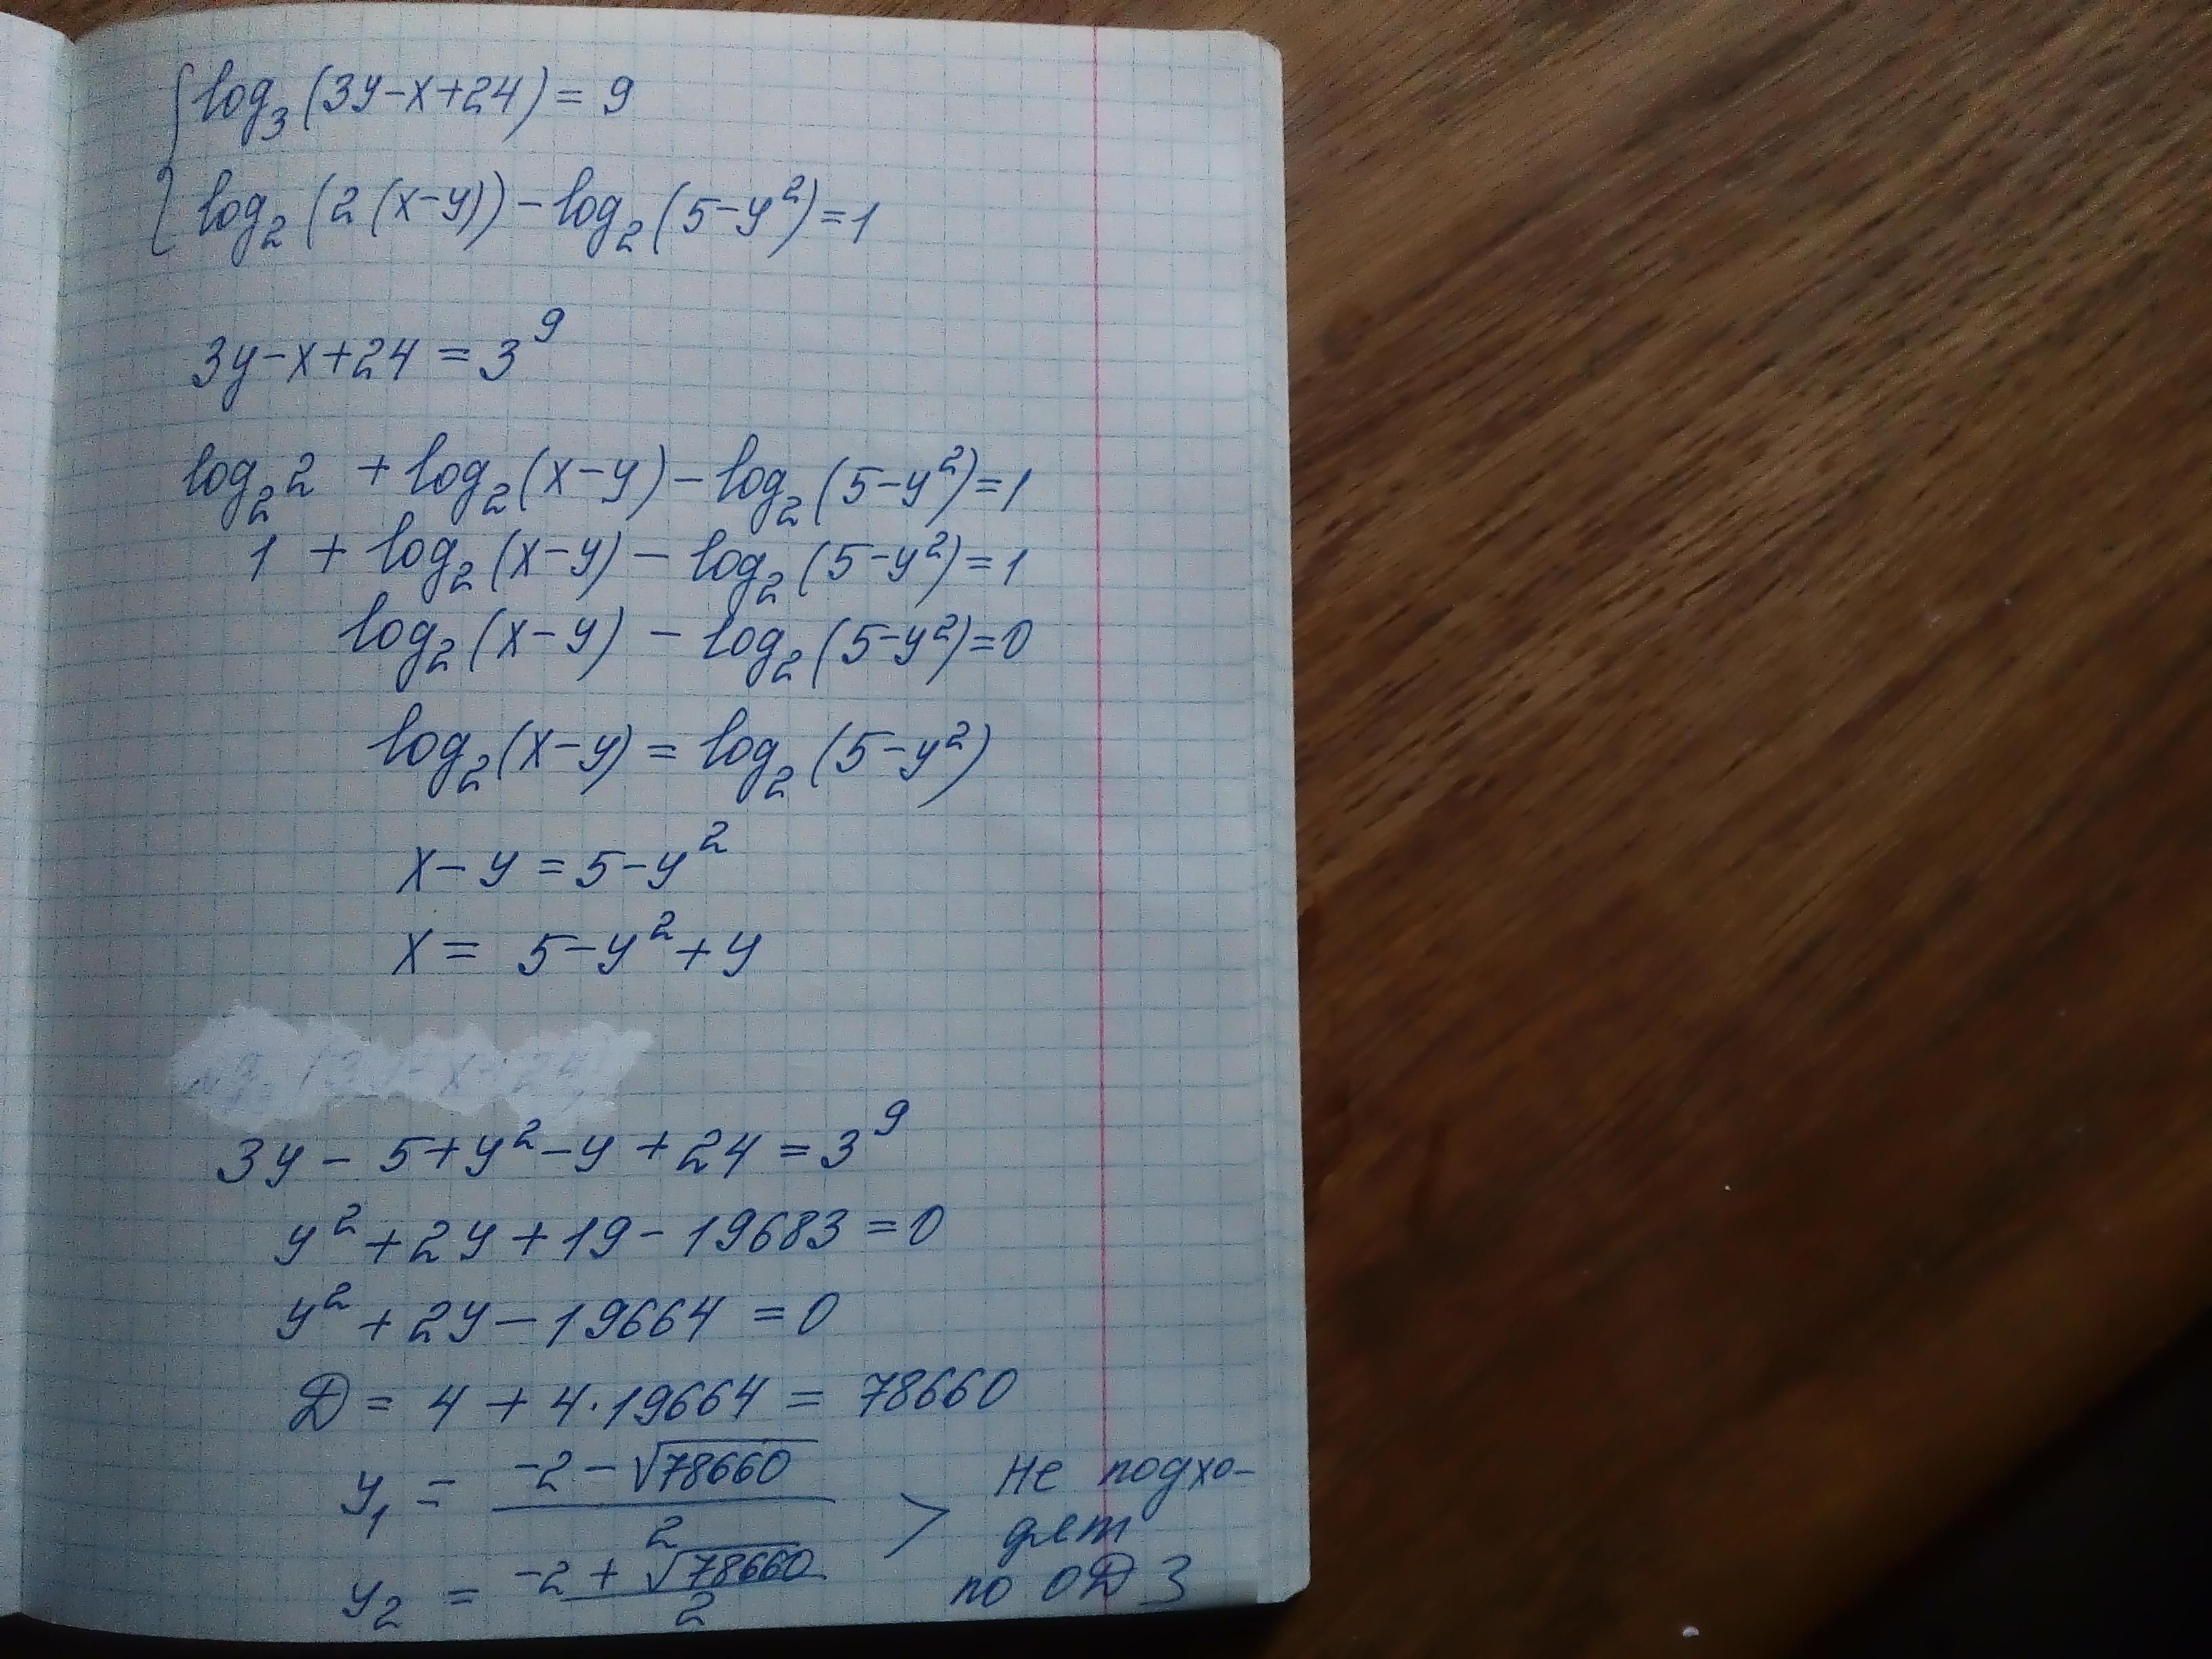 { log₃(3y-x+24) = 9
log₂(2(x-y)) - log₂(5-y²) = 1
3y-x+24 = 3⁹
log₂2 + log₂(x-y) - log₂(5-y²) = 1
1 + log₂(x-y) - log₂(5-y²) = 1
log₂(x-y) - log₂(5-y²) = 0
log₂(x-y) = log₂(5-y²)
x-y = 5-y²
x = 5-y²+y
3y - 5+y²-y + 24 = 3⁹
y² + 2y + 19 - 19683 = 0
y² + 2y - 19664 = 0
D = 4 + 4·19664 = 78660
y₁ = (-2 - √78660)/2 > не подхо-
дят
y₂ = (-2 + √78660)/2 по ОДЗ